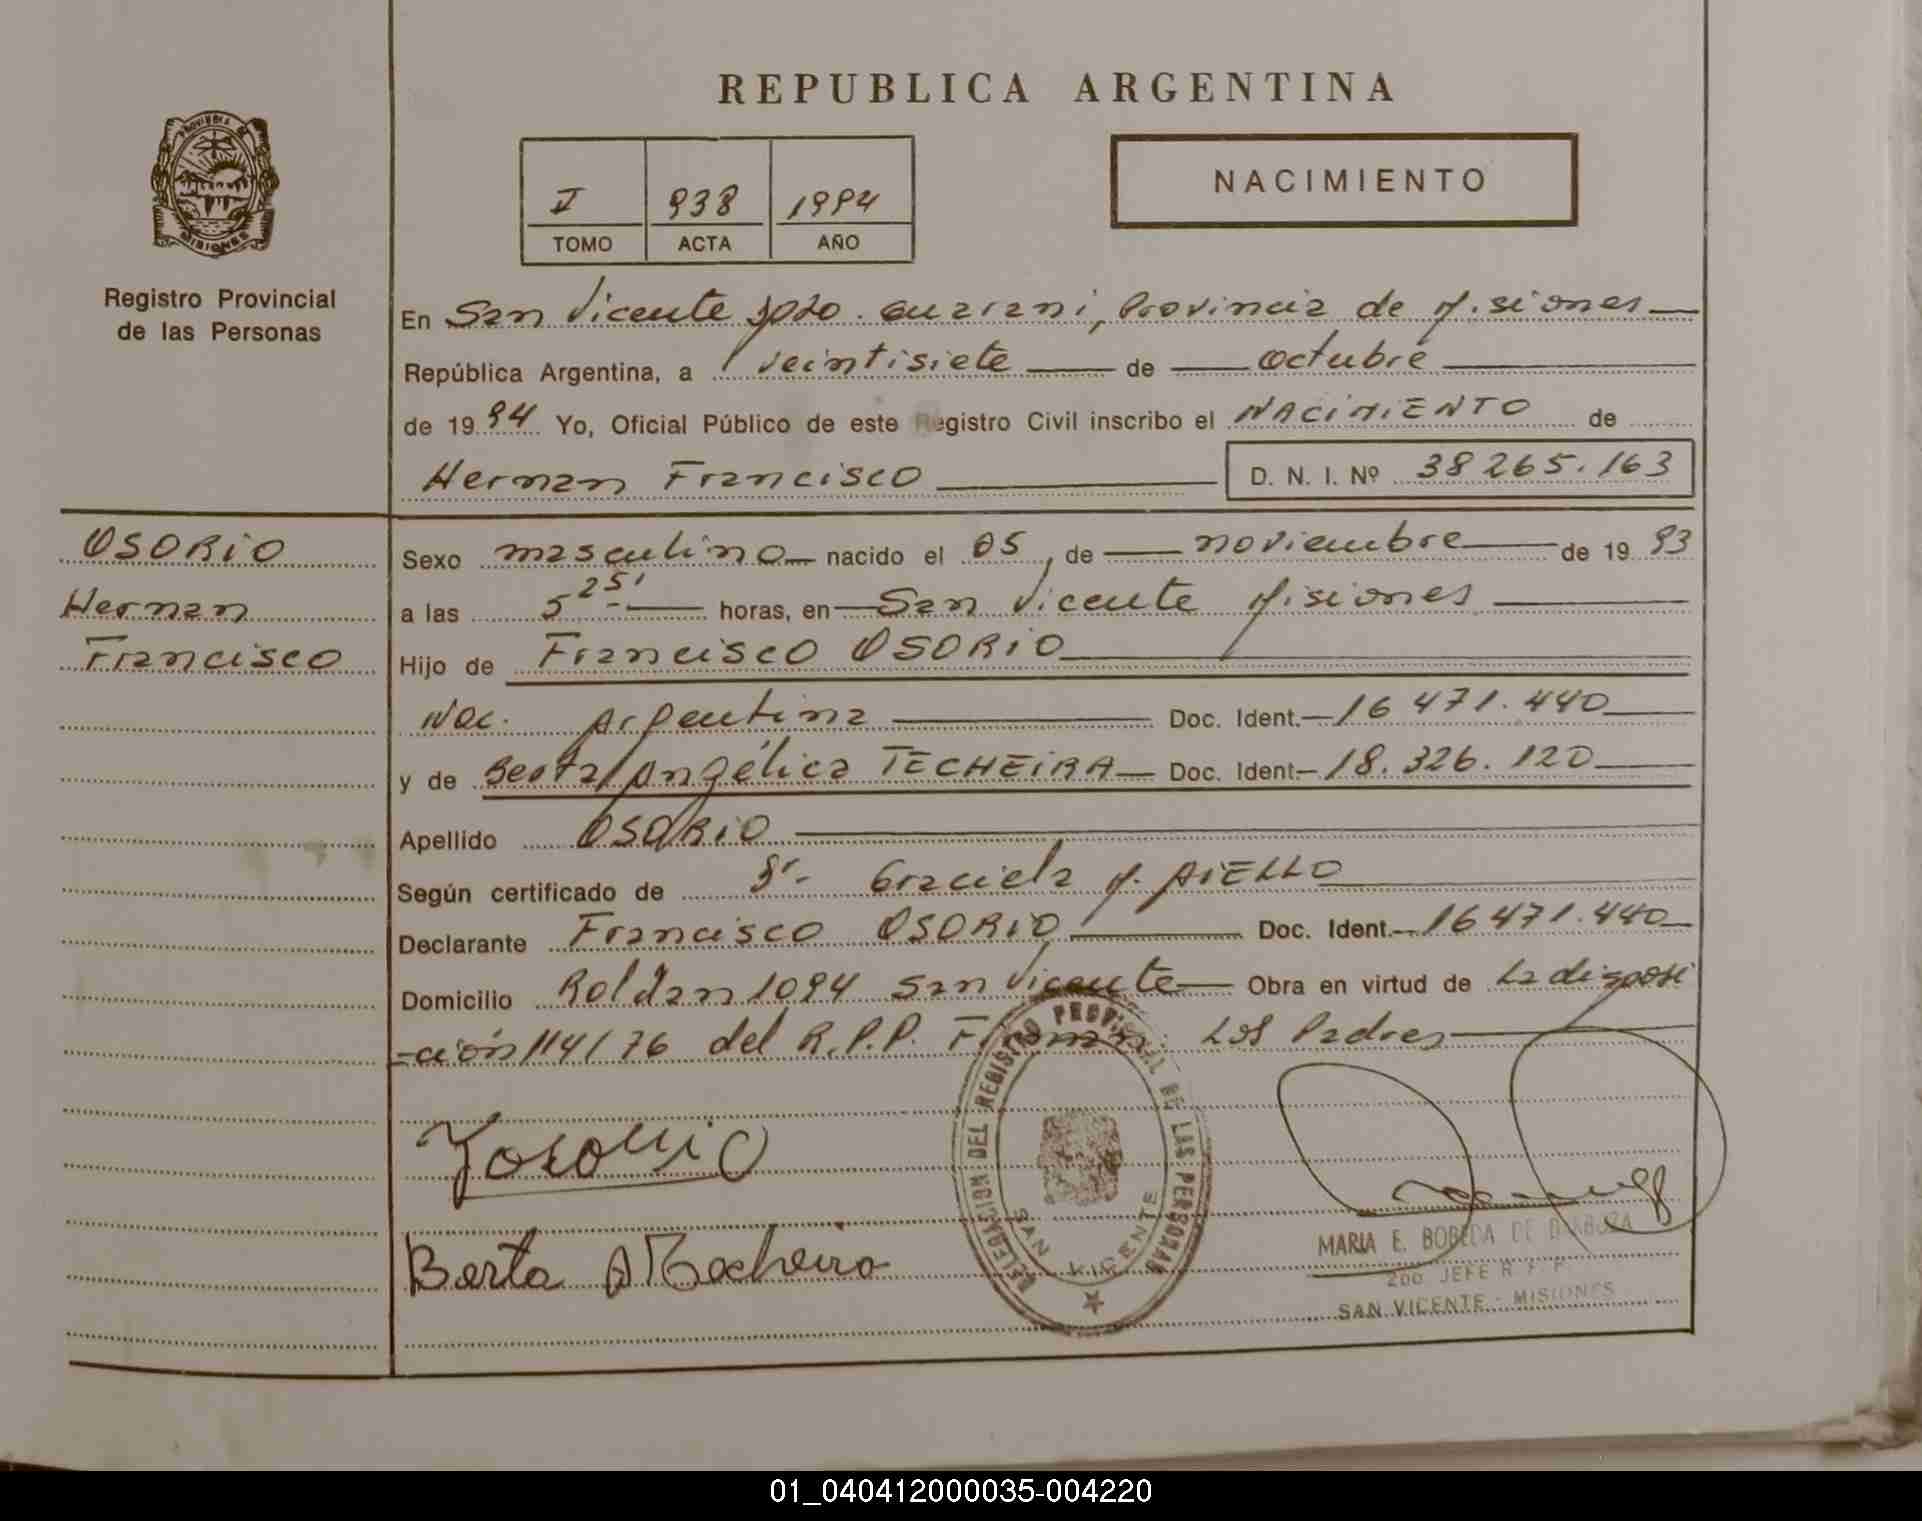 REPUBLICA ARGENTINA
PROVINCIA DE MISIONES
Registro Provincial
de las Personas
I 938 1994
TOMO ACTA AÑO
NACIMIENTO
En San Vicente Dpto. Guarani, Provincia de Misiones
República Argentina, a veintisiete de octubre
de 1994 Yo, Oficial Público de este Registro Civil inscribo el NACIMIENTO de
Hernan Francisco D. N. I. Nº 38265.163
OSORIO
Hernan
Francisco
Sexo masculino nacido el 05, de noviembre de 1993
a las 5 25' horas, en San Vicente Misiones
Hijo de Francisco OSORIO
Nac. Argentina Doc. Ident. 16471.440
y de Berta Angélica TECHEIRA Doc. Ident 18.326.120
Apellido OSORIO
Según certificado de Graciela M. AIELLO
Declarante Francisco OSORIO Doc. Ident. 16471.440
Domicilio Roldan 1094 San Vicente Obra en virtud de La disposi
-ción 114/76 del R.P.P. Firman: Los Padres
DELEGACION DEL REGISTRO PROVINCIAL DE LAS PERSONAS
SAN VICENTE
Berta A Techeira
MARIA E. BOBEDA DE BARBOZA
2do. JEFE R.P.P.
SAN VICENTE - MISIONES
01_040412000035-004220